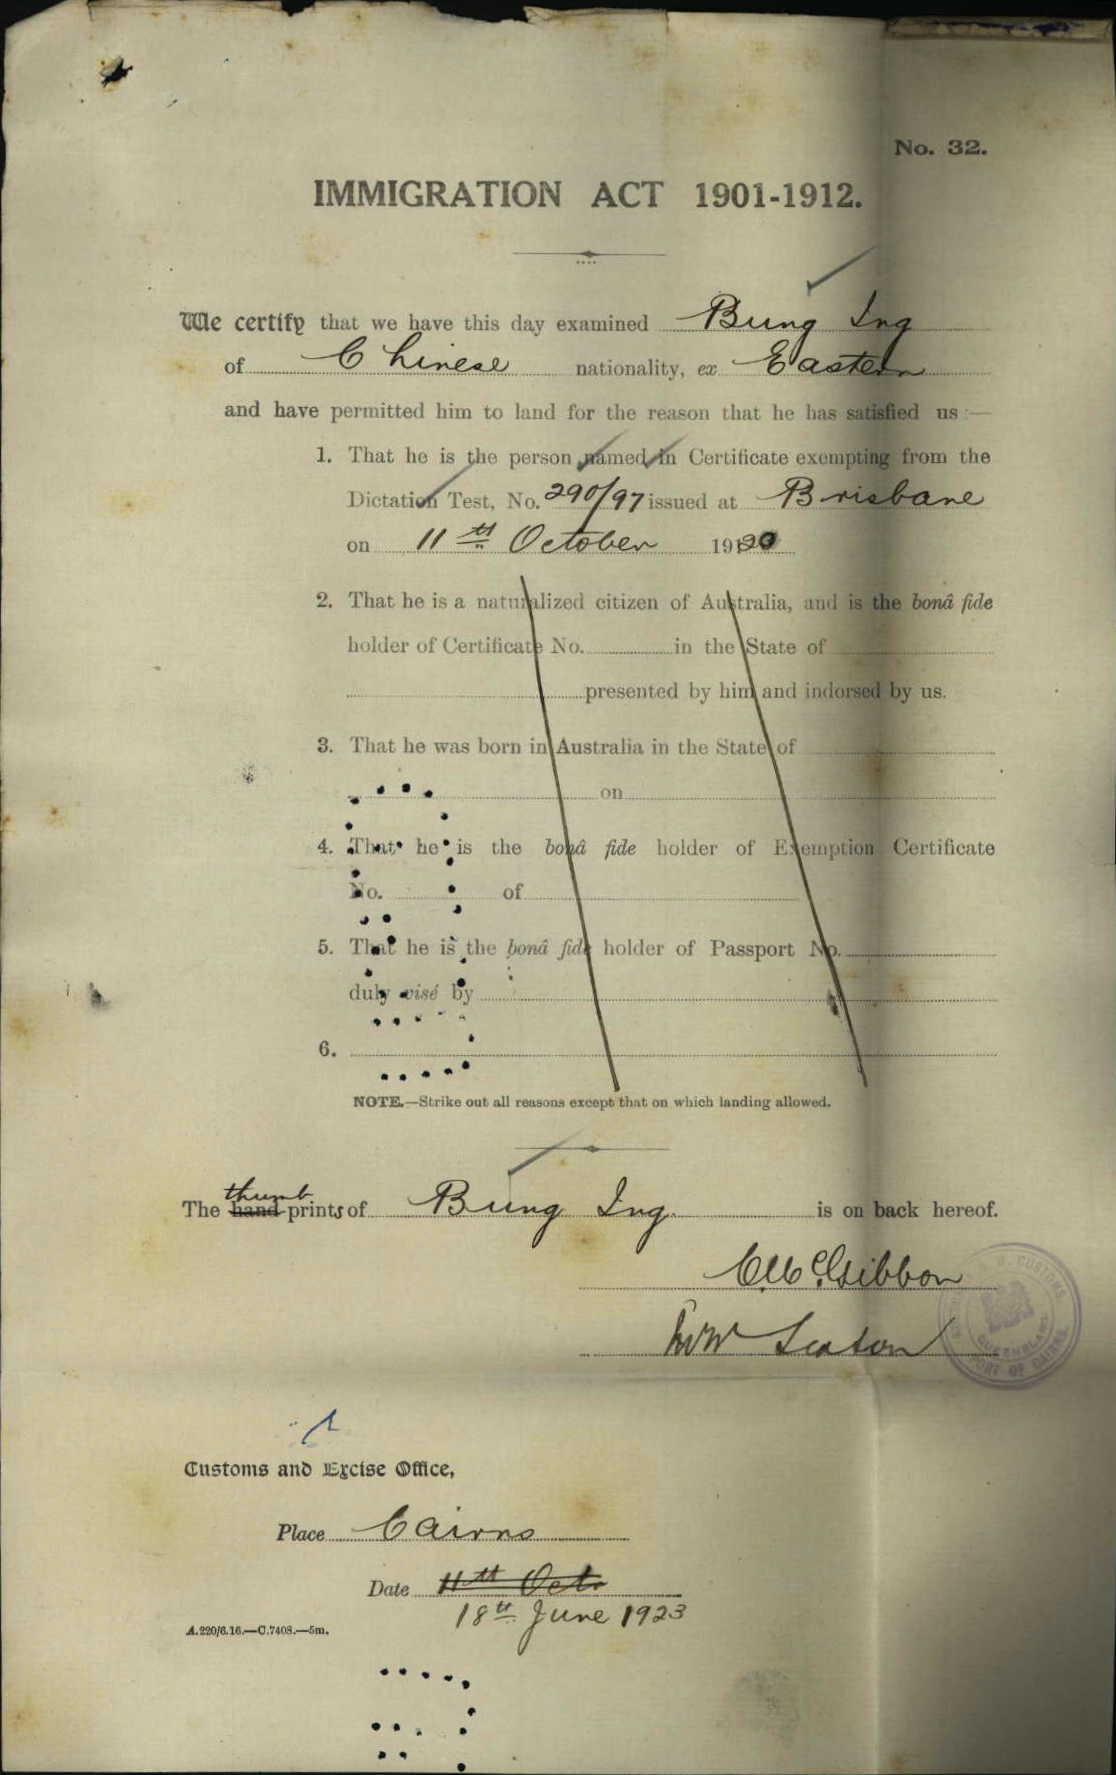 No. 32.
IMMIGRATION ACT 1901-1912.
We certify that we have this day examined Bung Ing
of Chinese nationality, ex Eastern
and have permitted him to land for the reason that he has satisfied us :—
1. That he is the person named in Certificate exempting from the
Dictation Test, No. 290/97 issued at Brisbane
on 11th October 1920
2. That he is a naturalized citizen of Australia, and is the bonâ fide
holder of Certificate No. in the State of
presented by him and indorsed by us.
3. That he was born in Australia in the State of
on
4. That he is the bonâ fide holder of Exemption Certificate
No. of
5. That he is the bonâ fide holder of Passport No.
duly visé by
6.
NOTE.—Strike out all reasons except that on which landing allowed.
thumb
The hand prints of Bung Ing. is on back hereof.
McGibbon
Seaton
CUSTOMS
QUEENSLAND
PORT OF CAIRNS
Customs and Excise Office,
Place Cairns
Date 11th Octo
18th June 1923
A.220/6.16.—C.7408.—5m.